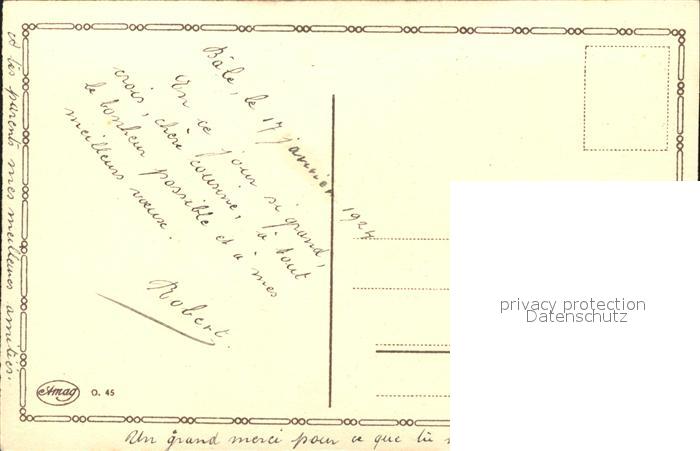 Bâle, le 17 janvier 1924
En ce jour si grand,
crois, chère cousine, à tout
le bonheur possible et à mes
meilleurs vœux.
Robert.
à tes parents mes meilleures amitiés.
Un grand merci pour ce que tu
Amag
O. 45
privacy protection
Datenschutz